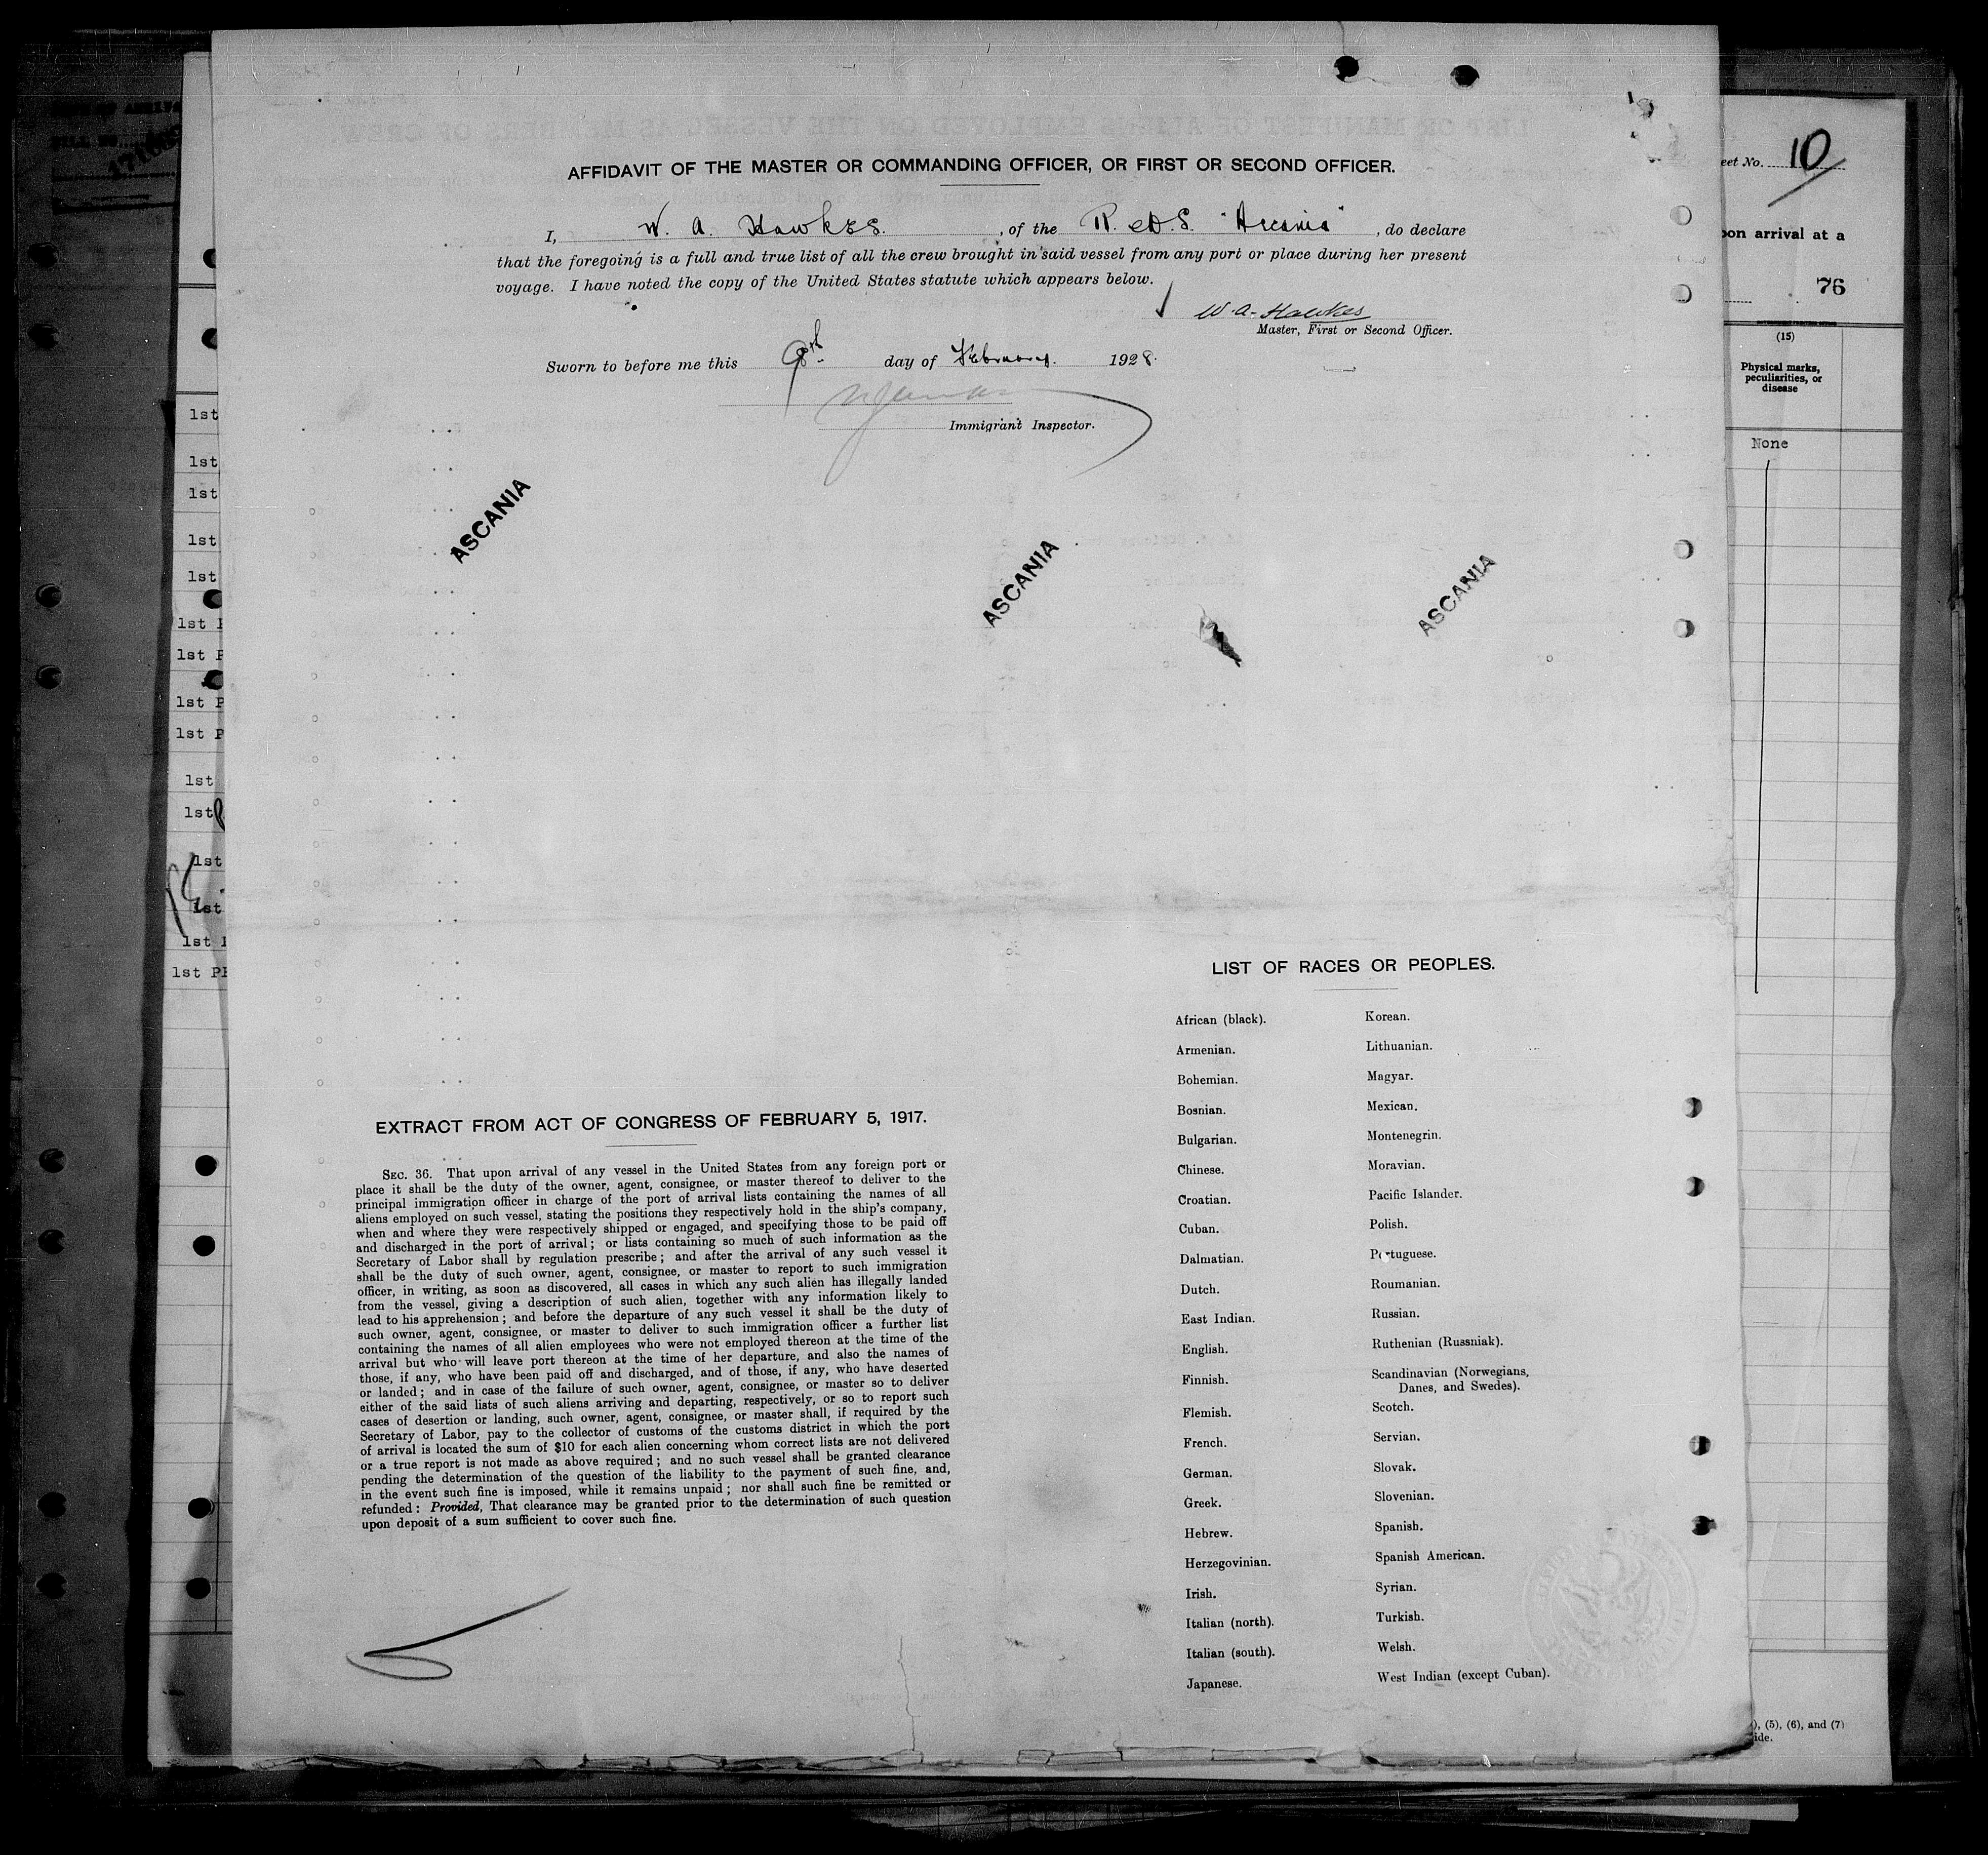 AFFIDAVIT OF THE MASTER OR COMMANDING OFFICER, OR FIRST OR SECOND OFFICER.
I, W. A. Hawkes. , of the R.M.S. "Ascania" , do declare
that the foregoing is a full and true list of all the crew brought in said vessel from any port or place during her present
voyage. I have noted the copy of the United States statute which appears below.
W. A. Hawkes
Master, First or Second Officer.
Sworn to before me this day of February. 1928.
Immigrant Inspector.
ASCANIA
ASCANIA
ASCANIA
EXTRACT FROM ACT OF CONGRESS OF FEBRUARY 5, 1917.
SEC. 36. That upon arrival of any vessel in the United States from any foreign port or
place it shall be the duty of the owner, agent, consignee, or master thereof to deliver to the
principal immigration officer in charge of the port of arrival lists containing the names of all
aliens employed on such vessel, stating the positions they respectively hold in the ship's company,
when and where they were respectively shipped or engaged, and specifying those to be paid off
and discharged in the port of arrival; or lists containing so much of such information as the
Secretary of Labor shall by regulation prescribe; and after the arrival of any such vessel it
shall be the duty of such owner, agent, consignee, or master to report to such immigration
officer, in writing, as soon as discovered, all cases in which any such alien has illegally landed
from the vessel, giving a description of such alien, together with any information likely to
lead to his apprehension; and before the departure of any such vessel it shall be the duty of
such owner, agent, consignee, or master to deliver to such immigration officer a further list
containing the names of all alien employees who were not employed thereon at the time of the
arrival but who will leave port thereon at the time of her departure, and also the names of
those, if any, who have been paid off and discharged, and of those, if any, who have deserted
or landed; and in case of the failure of such owner, agent, consignee, or master so to deliver
either of the said lists of such aliens arriving and departing, respectively, or so to report such
cases of desertion or landing, such owner, agent, consignee, or master shall, if required by the
Secretary of Labor, pay to the collector of customs of the customs district in which the port
of arrival is located the sum of $10 for each alien concerning whom correct lists are not delivered
or a true report is not made as above required; and no such vessel shall be granted clearance
pending the determination of the question of the liability to the payment of such fine, and,
in the event such fine is imposed, while it remains unpaid; nor shall such fine be remitted or
refunded: Provided, That clearance may be granted prior to the determination of such question
upon deposit of a sum sufficient to cover such fine.
LIST OF RACES OR PEOPLES.
African (black).
Armenian.
Bohemian.
Bosnian.
Bulgarian.
Chinese.
Croatian.
Cuban.
Dalmatian.
Dutch.
East Indian.
English.
Finnish.
Flemish.
French.
German.
Greek.
Hebrew.
Herzegovinian.
Irish.
Italian (north).
Italian (south).
Japanese.
Korean.
Lithuanian.
Magyar.
Mexican.
Montenegrin.
Moravian.
Pacific Islander.
Polish.
Portuguese.
Roumanian.
Russian.
Ruthenian (Russniak).
Scandinavian (Norwegians,
Danes, and Swedes).
Scotch.
Servian.
Slovak.
Slovenian.
Spanish.
Spanish American.
Syrian.
Turkish.
Welsh.
West Indian (except Cuban).
eet No. 10
on arrival at a
76
(15)
Physical marks,
peculiarities, or
disease
None
), (5), (6), and (7)
ide.
1st
1st
1st
1st
1st
1st
1st P
1st P
1st P
1st
1st
1st
1st
1st
1st P